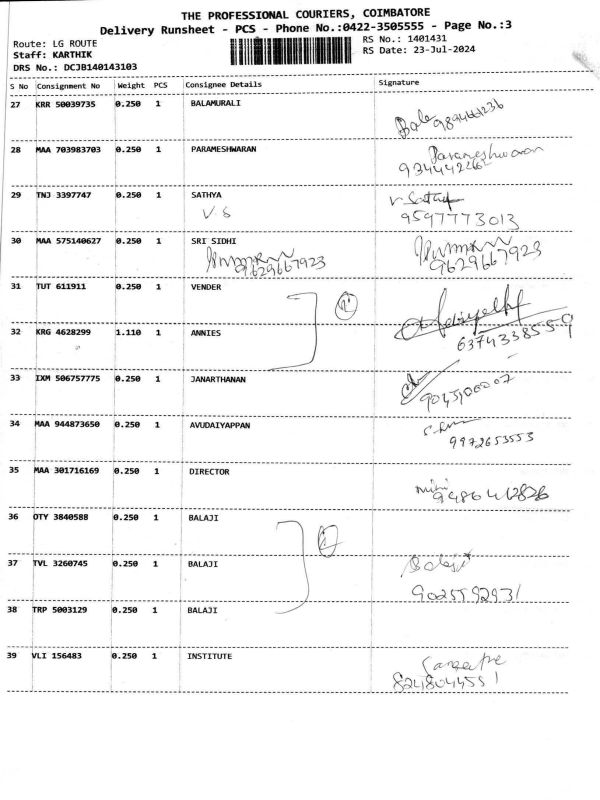 THE PROFESSIONAL COURIERS, COIMBATORE
Delivery Runsheet - PCS - Phone No.:0422-3505555 - Page No.:3
Route: LG ROUTE
RS No.: 1401431
Staff: KARTHIK
RS Date: 23-Jul-2024
DRS No.: DCJB140143103
S No Consignment No Weight PCS Consignee Details Signature
27 KRR 50039735 0.250 1 BALAMURALI
28 MAA 703983703 0.250 1 PARAMESHWARAN
Parameshwaran
29 TNJ 3397747 0.250 1 SATHYA
V.S
9597773013
30 MAA 575140627 0.250 1 SRI SIDHI
9629667923 9629667923
31 TUT 611911 0.250 1 VENDER
32 KRG 4628299 1.110 1 ANNIES
6374338559
33 IXM 506757775 0.250 1 JANARTHANAN
34 MAA 944873650 0.250 1 AVUDAIYAPPAN
9972653553
35 MAA 301716169 0.250 1 DIRECTOR
36 OTY 3840588 0.250 1 BALAJI
37 TVL 3260745 0.250 1 BALAJI
Balaji
9025592931
38 TRP 5003129 0.250 1 BALAJI
39 VLI 156483 0.250 1 INSTITUTE
8248044551